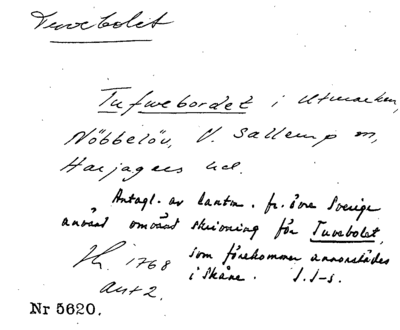 Tuvebolet
Tufwebordet i Utmarken,
Nöbbelöv, V. Sallerup sn,
Harjagers hd.
Antagl. av lantm. fr. övre Sverige
använt omvänd skrivning för Tuvebolet,
som förekommer annorstädes
i Skåne. S.I-s.
1768
akt 2.
Nr 5620.